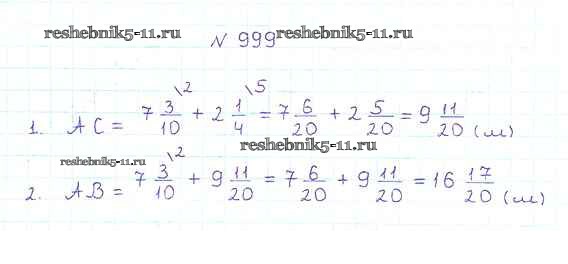 reshebnik5-11.ru
N 999 reshebnik5-11.ru
1. AC = 7 3/10 \2 + 2 1/4 \5 = 7 6/20 + 2 5/20 = 9 11/20 (м)
reshebnik5-11.ru
reshebnik5-11.ru
2. AB = 7 3/10 \2 + 9 11/20 = 7 6/20 + 9 11/20 = 16 17/20 (м)